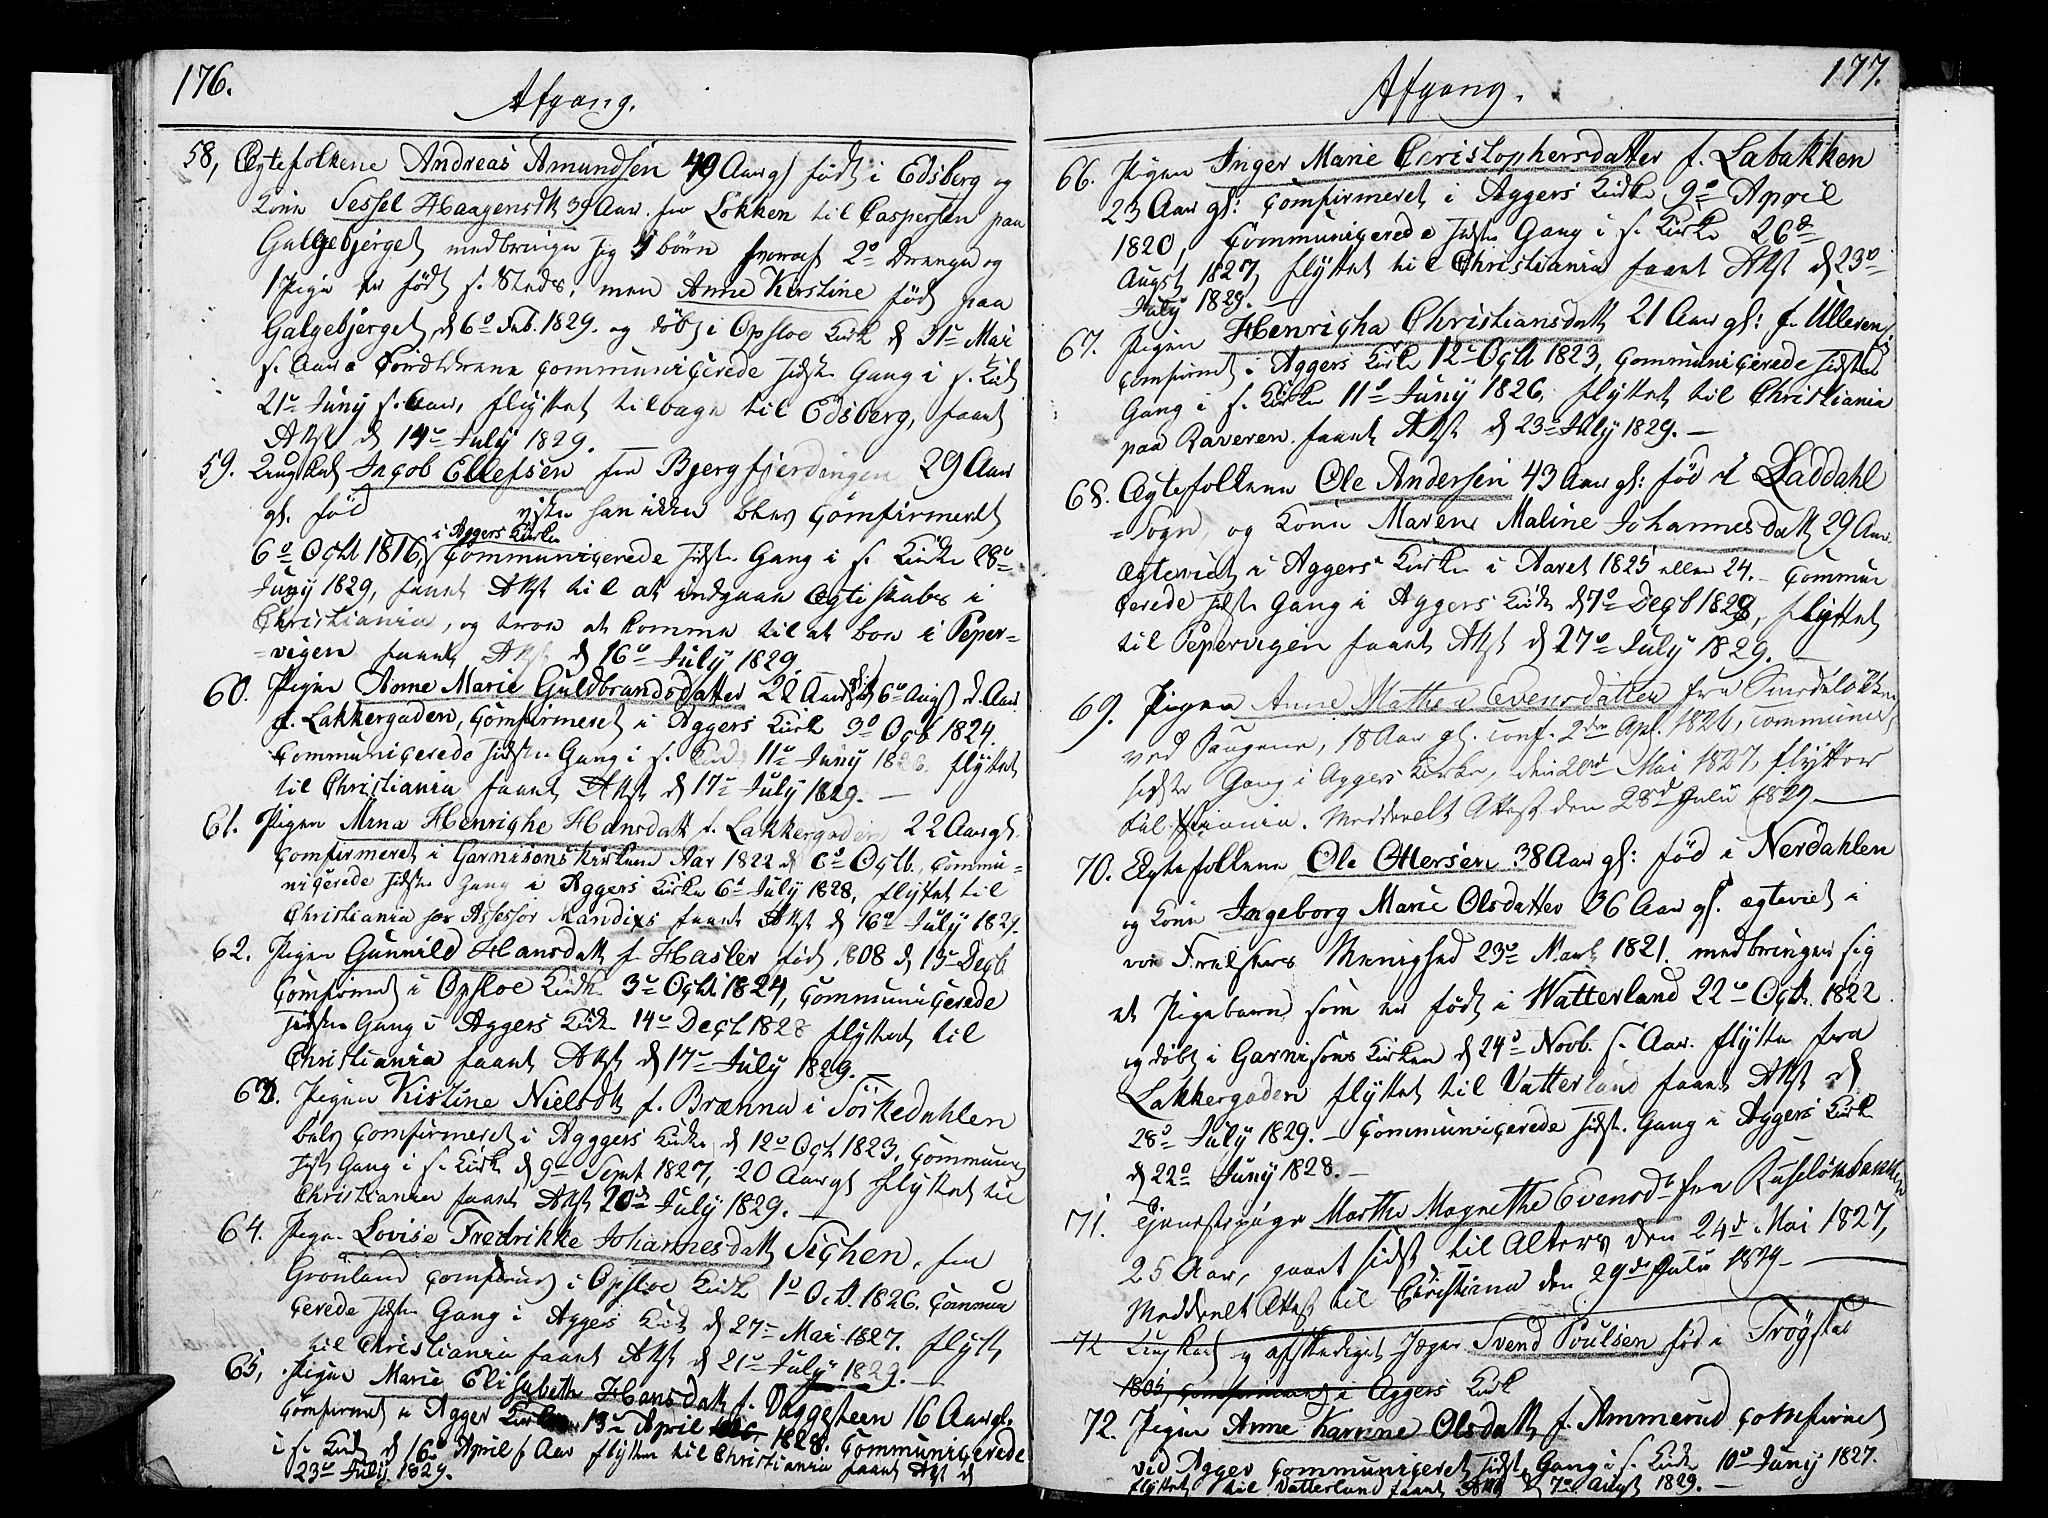 176.
Afgang.
58, Egtefolkene Andreas Amundsen 49 Aar gl født i Edsberg og
Kone Sessel Haagensdt 39 Aar fra Løkken til Caspersen paa
Galgebjerget medbringer sig børn hvoraf 2de Drenge og
1 Pige er født s. Steds, men Anne Kirstine fød paa
Galgebjerget d 6te Feb. 1829. og døbt i Opsloe Kirke d 31te Mai
s. Aar Forældrene Communicerede sidste Gang i s. Kirke
21de Juny s. Aar, flyttet tilbage til Edsberg, faaet
Attst d 14de July 1829.
59. Ungkarl Jacob Ellefsen fra Bjergfjerdingen 29 Aar
gl. fød viste han ikke blev Comfirmeret
i Aggers Kirke
6te Octb 1816, Communicerede sidste Gang i s. Kirke 28de
Juny 1829, faaet Attst til at indgaae Egteskabet i
Christiania, og troe at komme til at boe i Peper-
=vigen faaet Attst d 16de July 1829.
60. Pigen Anne Marie Guldbrandsdatter 22 Aar 6te Augst d. Aar
f. Lakkergaden, Comfirmeret i Aggers Kirke 3de Octb 1824.
Communicerede sidste Gang i s. Kirke 11te Juny 1826. flyttet
til Christiania faaet Attst d 17de July 1829. —
61. Pigen Anna Henrighe Hansdatt f. Lakkergaden 22 Aar gl.
Comfirmeret i Garnisons Kirken Aar 1822 d 6te Octb., Commu-
nicerede sidste Gang i Aggers Kirke 6te July 1828, flyttet til
Christiania hos Assessor Mandixs faaet Attst d 16de July 1829.
62. Pigen Gunnild Hansdatt f. Hasler født 1808 d 13de Decb.
Comfirmet i Opsloe Kirke 3de Octb 1824, Communicerede
sidste Gang i Aggers Kirke 14de Decb 1828 flyttet til
Christiania faaet Attst d 17de July 1829. —
63. Pigen Kistine Nielsdt f. Brænna i Sørkedahlen
blev Comfirmeret i Agggers Kirke d 12te Oct 1823, Commune
sidst Gang i s. Kirke d 9de Sept 1827, 20 Aar gl flyttet til
Christiania faaet Attst 20de July 1829. —
64. Pigen Lovise Fredrikke Johannesdatt Sichen, fra
Grønland Comfirmet i Opsloe Kirke 1te Oct. 1826. Commun
cerede sidste Gang i Aggers Kirke d 27de Mai 1827. flytt
til Christiania faaet Attst d 21de July 1829. —
65, Pigen Marie Elisabeth Hansdatt f. Daggesteen 16 Aar gl.
Comfirmet i Agger Kirke 13de April 1828. Communicerede
i s. Kirke d 16de April s Aar flytter til Christiania faaet Attst d
23de July 1829.
177.
Afgang.
66. Pigen Inger Marie Christophersdatter f. Labakken
23 Aar gl: Comfirmeret i Aggers Kirke 9de April
1820, Communicerede sidste Gang i s. Kirke 26de
Augst 1827, flyttet til Christiania faaet Attst d 23de
July 1829. —
67. Pigen Henricha Christiansdatt 21 Aar gl: f. Ulleren
Comfirmet i Aggers Kirke 12te Octb 1823, Communicerede sidste
Gang i s. Kirke 11te Juny 1826, flyttet til Christiania
paa Raveren faaet Attst d 23de July 1829. —
68. Egtefolkene Ole Andersen 43 Aar gl: fød i Laddahl
=Sogn, og Kone Maren Maline Johannesdatt 29 Aar
Egteviet i Aggers Kirke i Aaret 1825 eller 24. — Commun
cerede sidste Gang i Aggers Kirke d 7de Decb 1828, flyttet
til Pepervigen faaet Attst d 27de July 1829. —
69. Pigen Anne Mathea Evensdatter fra Smedeløkken
ved Saugene, 18 Aar gl. Conf. 2den Apl. 1826, communic
sidste Gang i Aggers Kirke, den 20de Mai 1827, flytter
til Xtiania. Meddeelt Attest den 28de Julii 1829 —
70. Egtefolkene Ole Ottersen 38 Aar gl: fød i Nerdahlen
og Kone Ingeborg Marie Olsdatter 36 Aar gl. egteviet i
vor Frelsers Menighed 23de Marts 1821. medbringer sig
et Pigebarn som er født i Watterland 22de Octb. 1822.
og døbt i Garnisons Kirken d 24de Novb. s. Aar. flytte fra
Lakkergaden flyttet til Vatterland faaet Attst d
28de July 1829. — Communicerede sidste Gang i Aggers Kirke
d 22de Juny 1828. —
71. Tjenestepige Marthe Magrethe Evensdt fra Ruseløkbakken
25 Aar, gaaet sidst til Alters den 24de Mai 1827,
Meddeelt Attest til Christiania den 29de Julii 1829 —
72 Ungkarl og afskediget Jæger Svend Poulsen fød i Trøgstad
1805, Comfirmeret i Aggers Kirke
72. Pigen Anne Karine Olsdatt f. Ammerud Comfirmet
ved Agger Communiceret sidste Gang i s. Kirke 10de Juny 1827.
flyttet til Vatterland faaet Attst d 7de Augst 1829. —